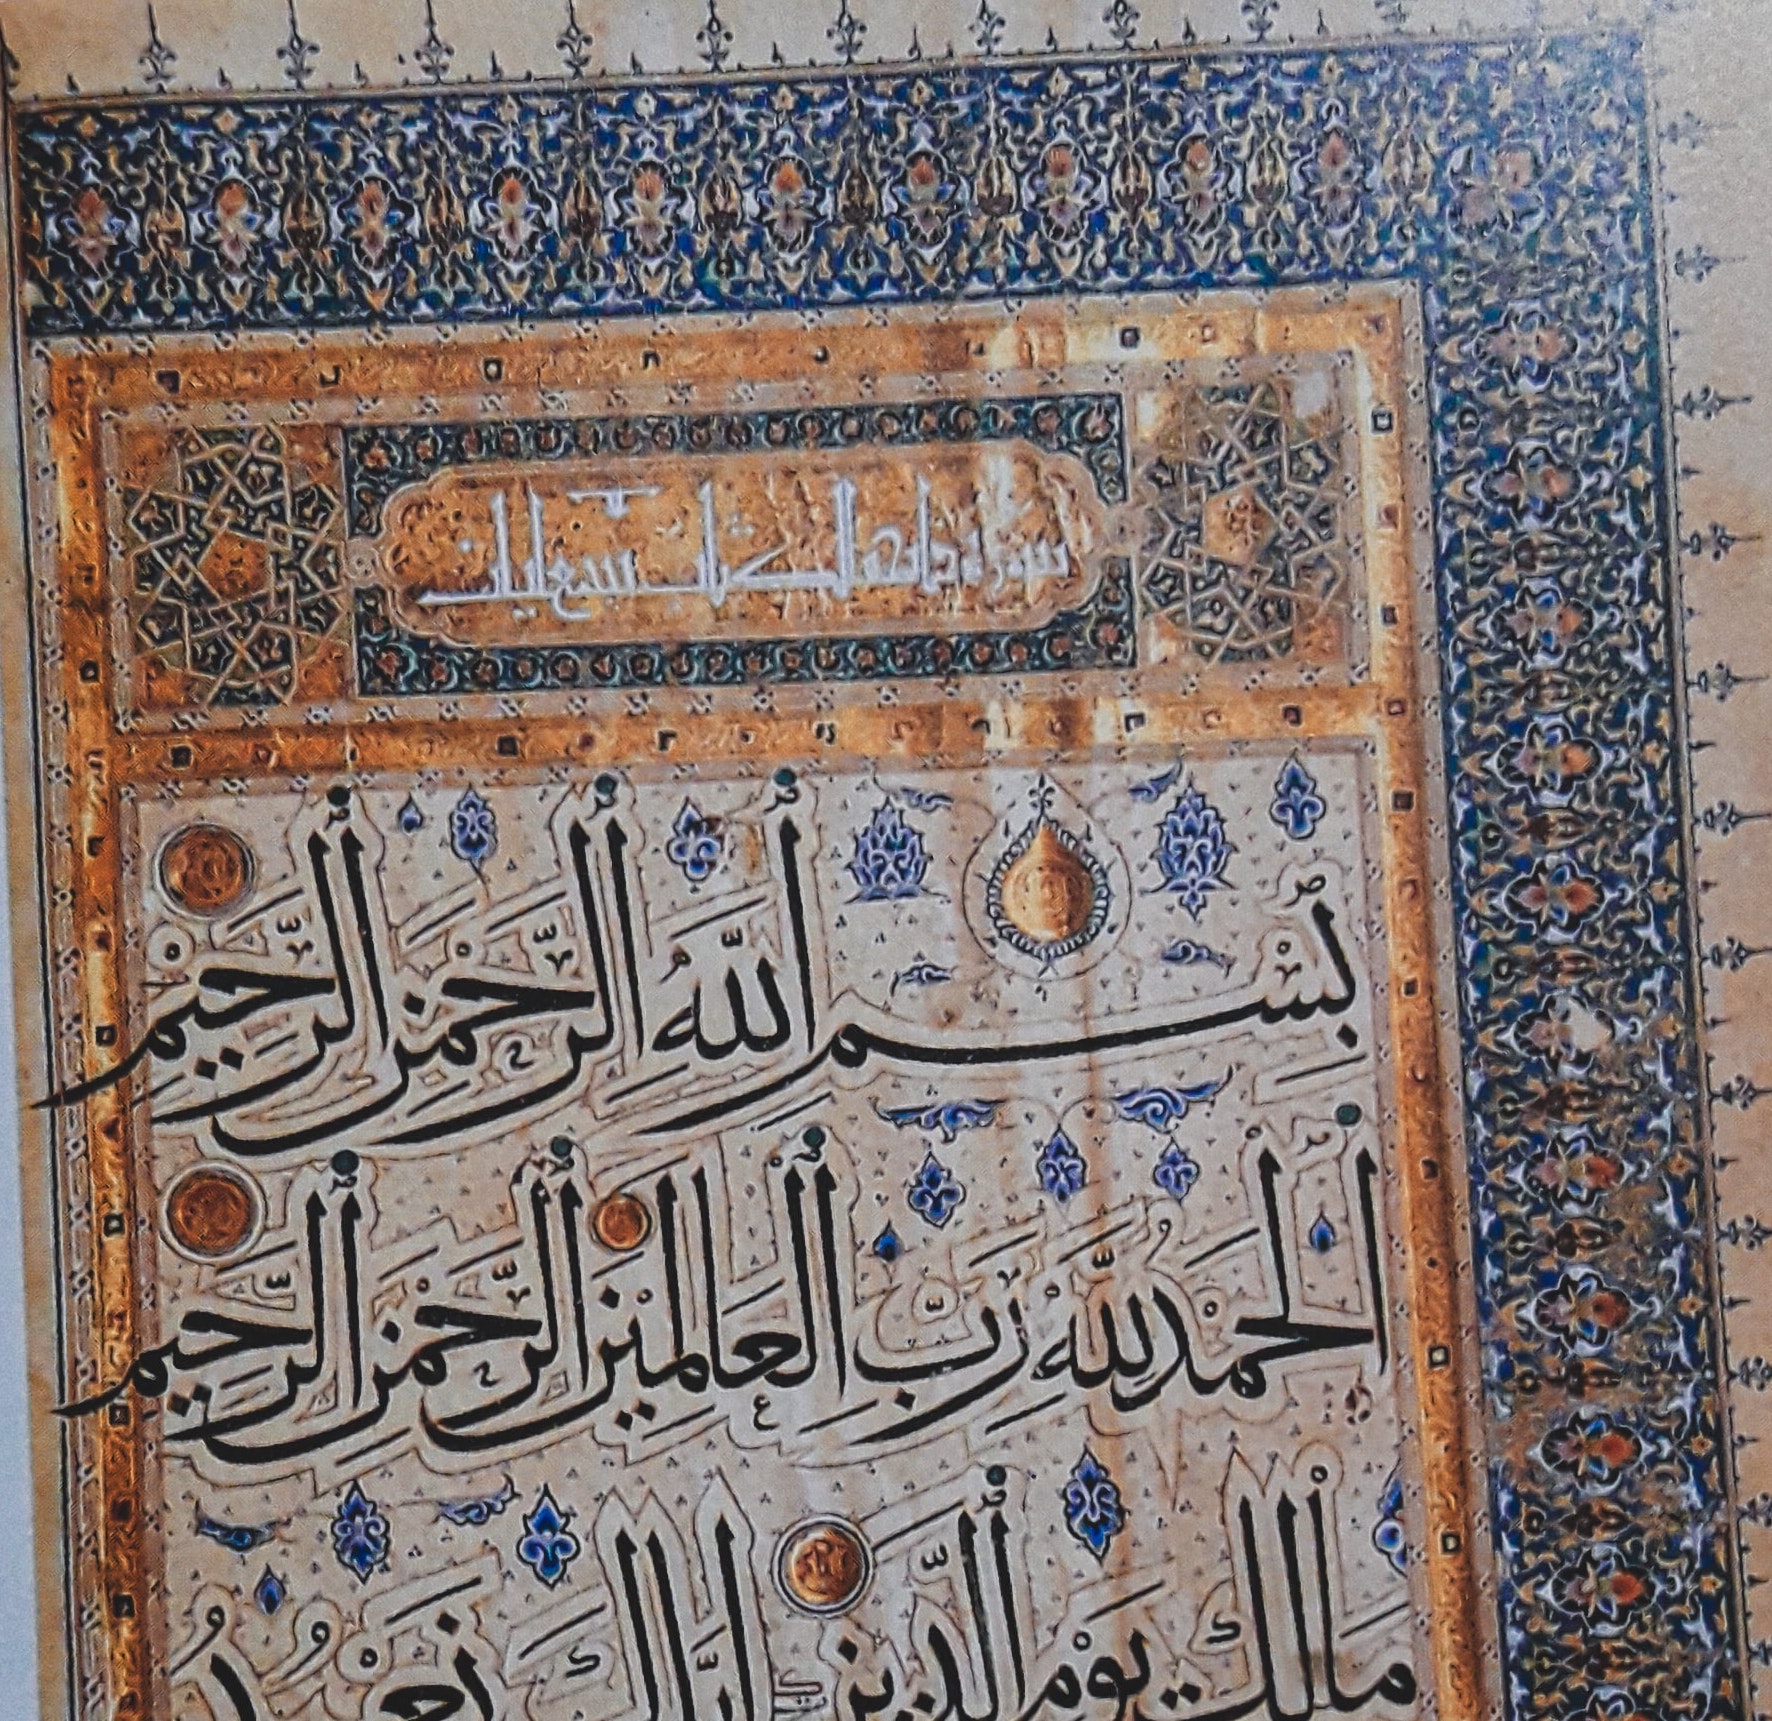 سورة فاتحة الكتاب سبع ايات
بِسْمِ اللَّهِ الرَّحْمٰنِ الرَّحِيمِ
اَلْحَمْدُ لِلَّهِ رَبِّ الْعَالَمِينَ الرَّحْمٰنِ الرَّحِيمِ
مَالِكِ يَوْمِ الدِّينِ اِيَّاكَ نَعْبُدُ